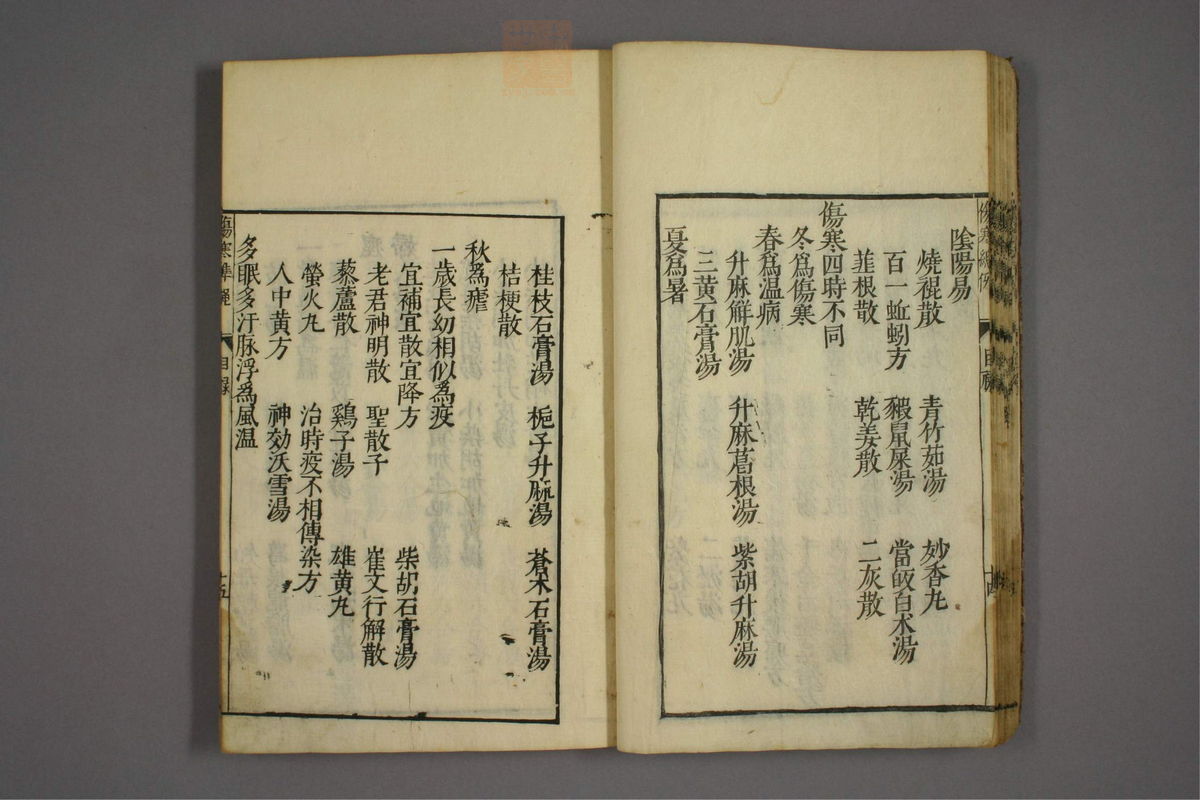 陰陽易
燒裩散 青竹茹湯 妙香丸
百一蚯蚓方 豭鼠屎湯 當皈白朮湯
韮根散 乾姜散 二灰散
傷寒四時不同
冬爲傷寒
春爲温病
升麻解肌湯 升麻葛根湯 紫胡升麻湯
三黄石膏湯
夏爲暑
桂枝石膏湯 梔子升麻湯 蒼朮石膏湯
桔梗散
秋爲瘧
一歲長幼相似爲疫
宜補宜散宜降方 柴胡石膏湯
老君神明散 聖散子 崔文行解散
藜蘆散 鷄子湯 雄黄丸
螢火丸 治時疫不相傳染方
人中黄方 神効沃雪湯
多眠多汗脉浮爲風温
傷寒準繩 目録 十五